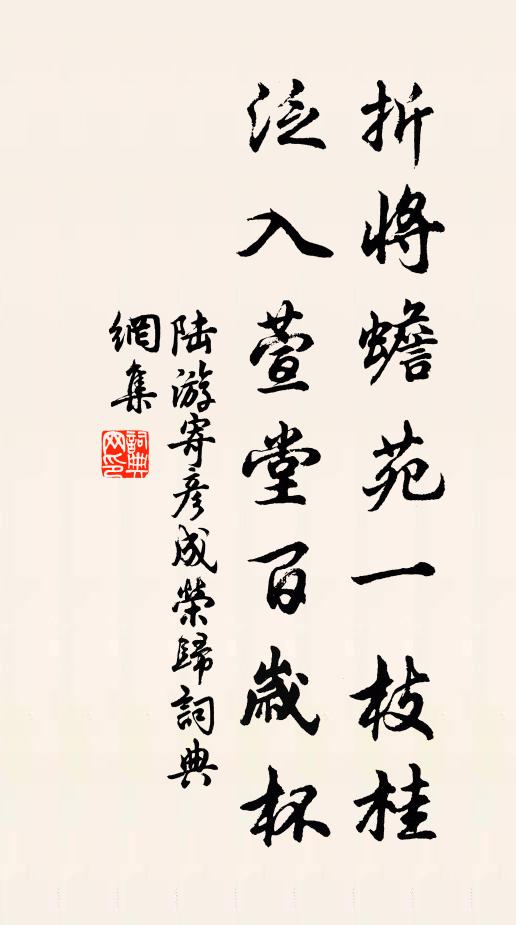 折將蟾苑一枝桂
泛入萱堂百歲杯
陆游寄彦成榮歸詞典
網集
詞典
网印